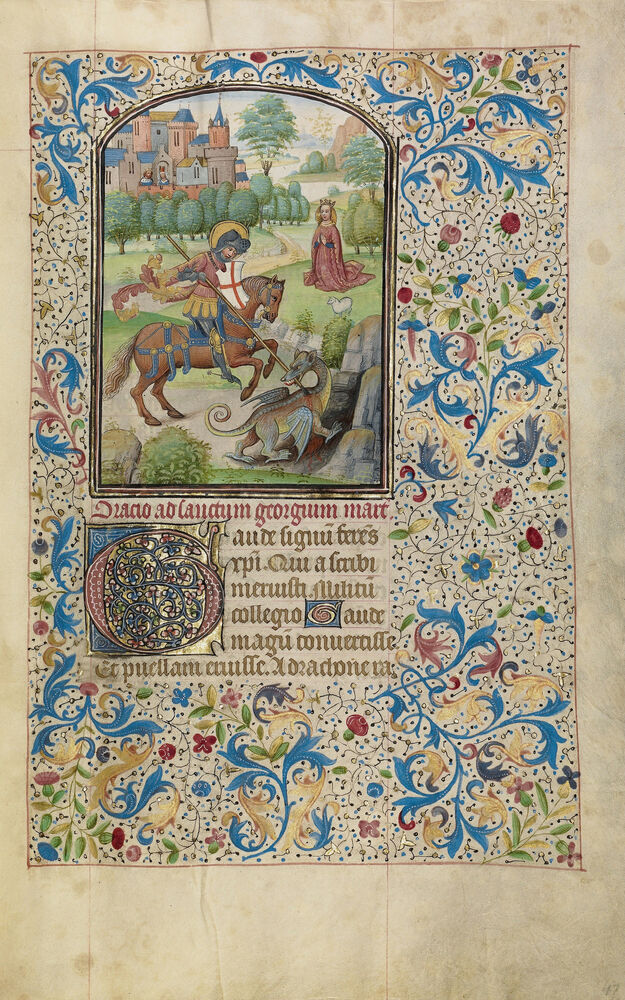 Oracio ad sanctum georgium mart
Gaude signũ ferẽs
xpĩ. Qui a scribi
meruisti Militũ
collegio Gaude
magũ convertisse
Et puellam eruisse. A drachone va
67